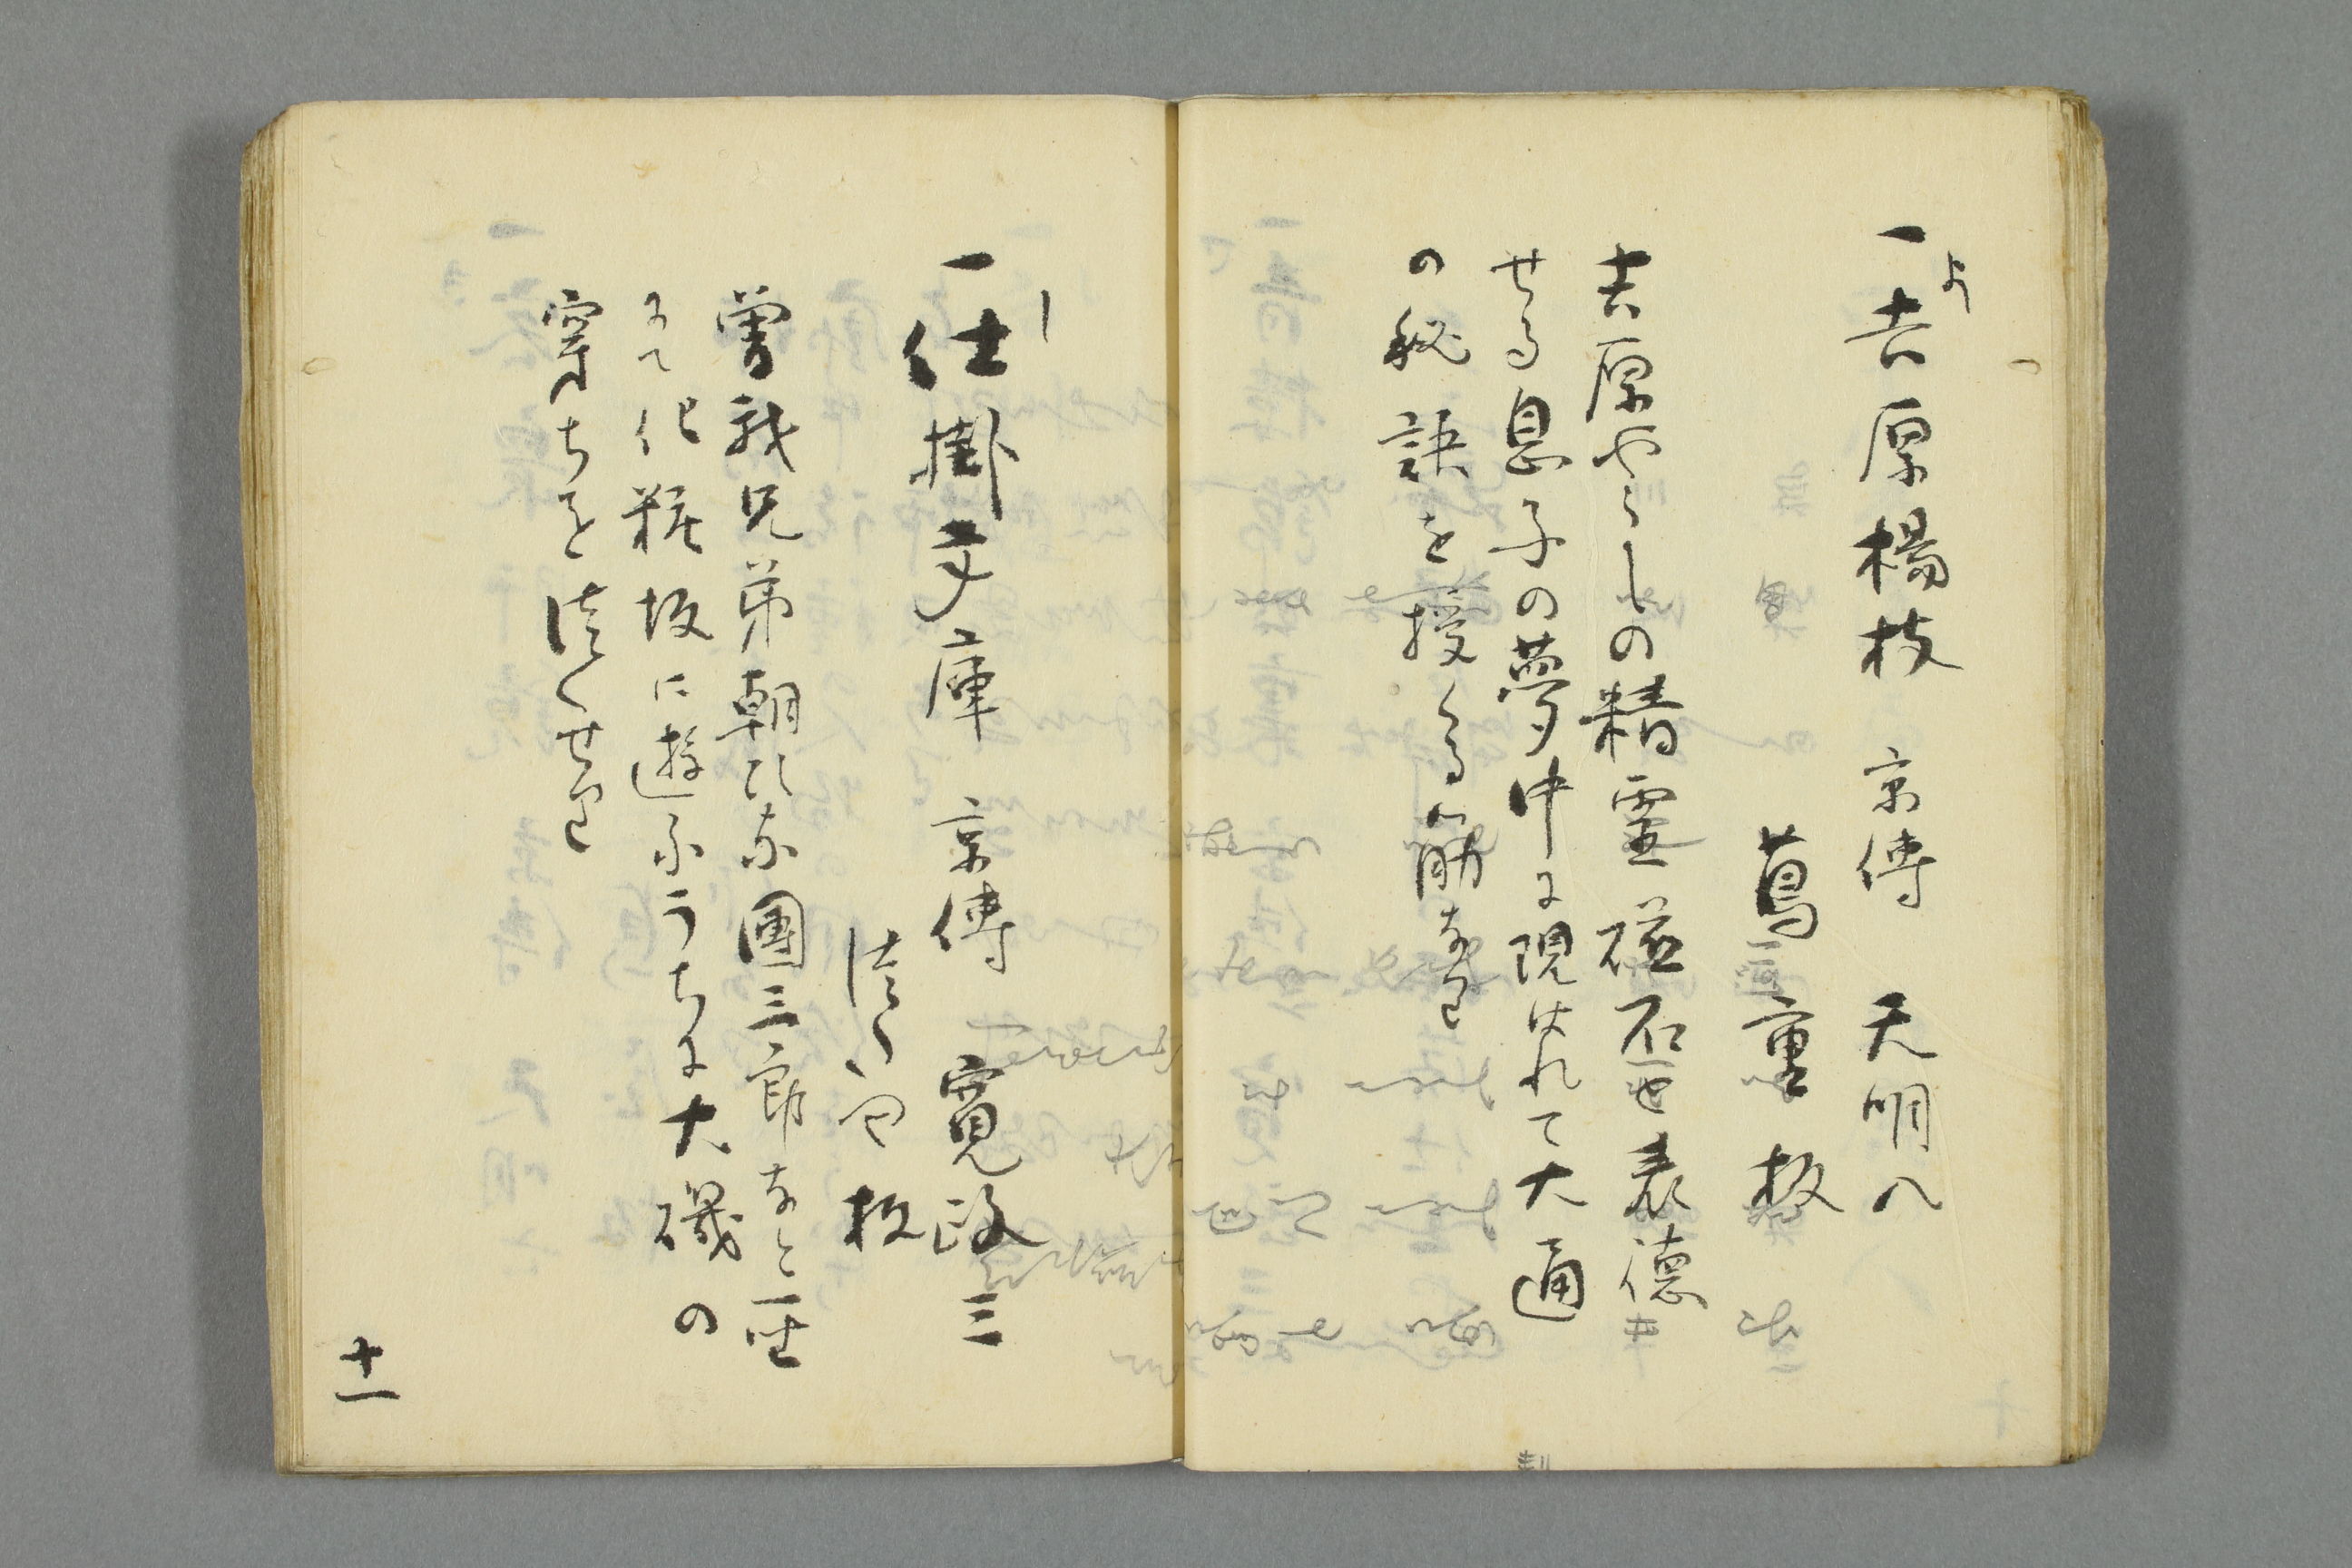 よ
一吉原楊枝 京傳 天明八
蔦重板
吉原やうしの精霊磁石と表徳
せる息子の夢中に現はれて大通
の秘訣を授くる筋なり
し
一仕掛文庫 京傳 寛政三
つたや板
曽我兄弟朝比奈團三郎なと一座
にて化粧坂に遊ふうちに大磯の
穿ちを尽くせり
十一